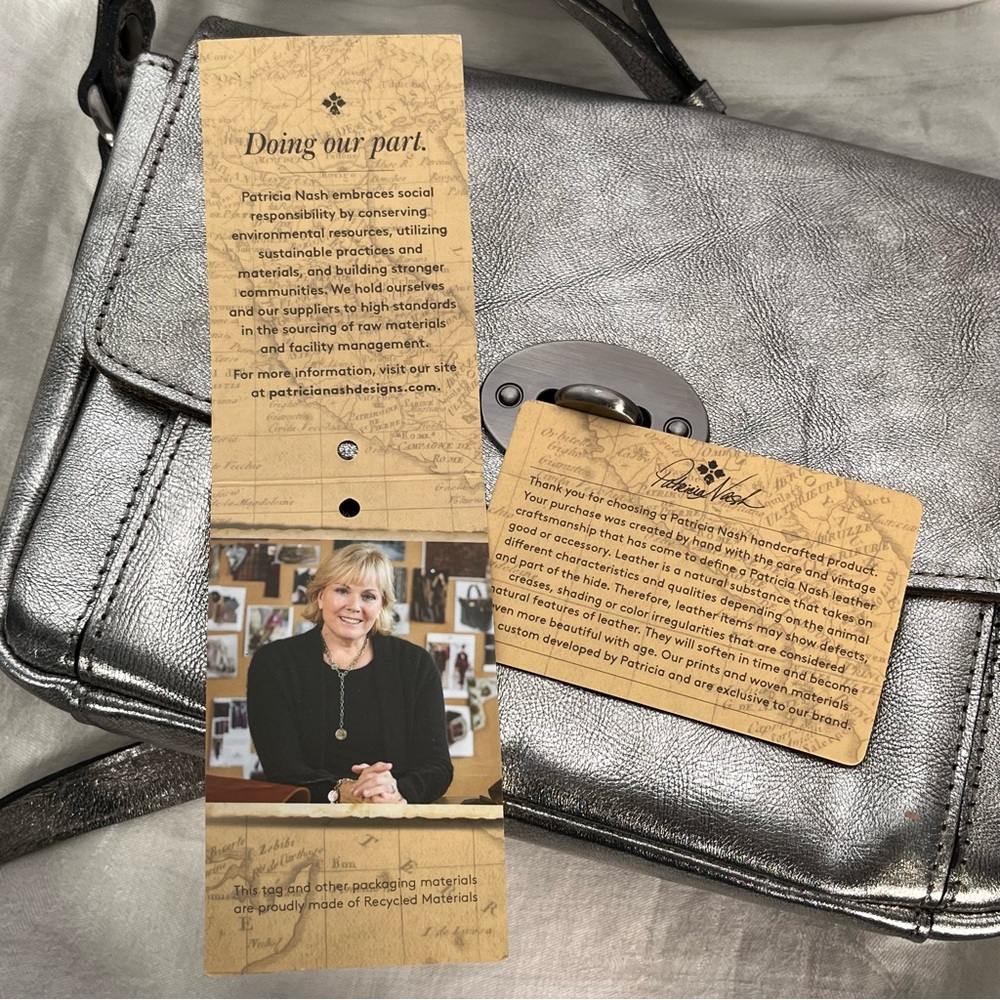 Doing our part.
Patricia Nash embraces social
responsibility by conserving
environmental resources, utilizing
sustainable practices and
materials, and building stronger
communities. We hold ourselves
and our suppliers to high standards
in the sourcing of raw materials
and facility management.
For more information, visit our site
at patricianashdesigns.com.
ROME
CAMPAGNE DE
ROME
This tag and other packaging materials
are proudly made of Recycled Materials
Patricia Nash
Thank you for choosing a Patricia Nash handcrafted product.
Your purchase was created by hand with the care and vintage
craftsmanship that has come to define a Patricia Nash leather
good or accessory. Leather is a natural substance that takes on
different characteristics and qualities depending on the animal
and part of the hide. Therefore, leather items may show defects,
creases, shading or color irregularities that are considered
natural features of leather. They will soften in time and become
even more beautiful with age. Our prints and woven materials
custom developed by Patricia and are exclusive to our brand.